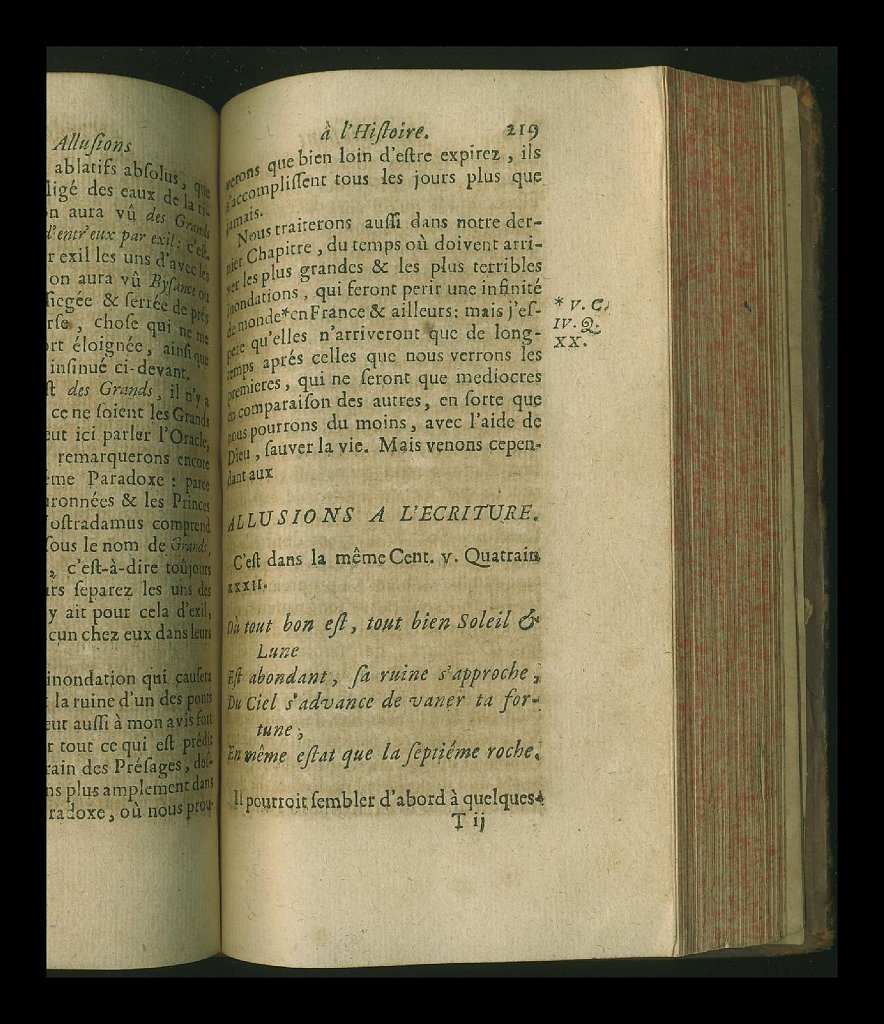 Alluſions
ablatifs abſolus, que
ligé des eaux de la ri-
n aura vû des Grands
d'entr'eux par exil: c'eſt-
r exil les uns d'avec les
on aura vû Byſance ou
ſiegée & ſerrée de prés
rſe, choſe qui ne me
rt éloignée, ainſi que
inſinué ci-devant.
t des Grands, il n'y a
ce ne ſoient les Grands
eut ici parler l'Oracle,
remarquerons encore
me Paradoxe: parce
ronnées & les Princes
oſtradamus comprend
ſous le nom de Grands,
, c'eſt-à-dire toûjours
rs ſeparez les uns des
y ait pour cela d'exil,
cun chez eux dans leurs
inondation qui cauſera
la ruine d'un des ponts
eut auſſi à mon avis fort
t tout ce qui eſt prédit
rain des Préſages,
ns plus amplement dans
radoxe, où nous prou-
à l'Hiſtoire. 219
verons que bien loin d'eſtre expirez, ils
s'accompliſſent tous les jours plus que
jamais.
Nous traiterons auſſi dans notre der-
nier Chapitre, du temps où doivent arri-
ver les plus grandes & les plus terribles
inondations, qui feront perir une infinité
de monde*en France & ailleurs: mais j'eſ-
pere qu'elles n'arriveront que de long-
temps aprés celles que nous verrons les
premieres, qui ne ſeront que mediocres
en comparaiſon des autres, en ſorte que
nous pourrons du moins, avec l'aide de
Dieu, ſauver la vie. Mais venons cepen-
dant aux
* V. C.
IV. Q.
XX.
ALLUSIONS A L'ECRITURE.
C'eſt dans la même Cent. v. Quatrain
xxxii.
Où tout bon eſt, tout bien Soleil &
Lune
Eſt abondant, ſa ruine s'approche,
Du Ciel s'advance de vaner ta for-
tune,
En même eſtat que la ſeptiéme roche.
Il pourroit ſembler d'abord à quelques-
T ij